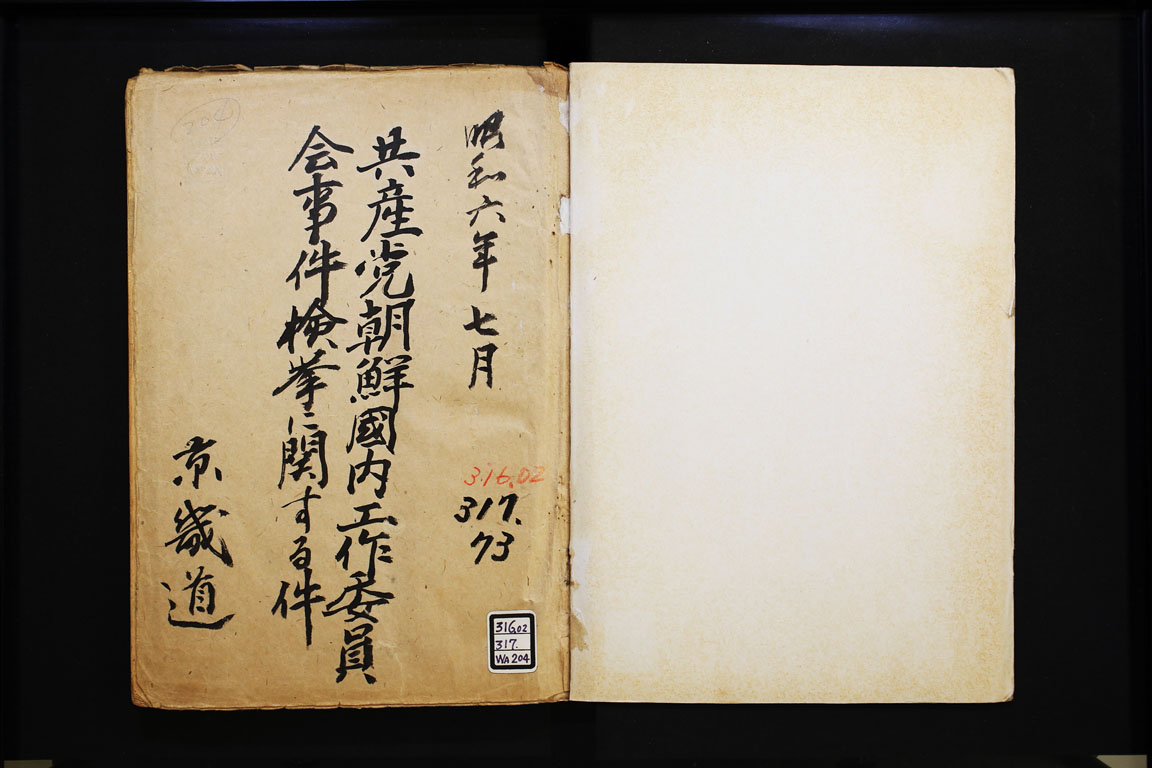 昭和六年七月
共産党朝鮮國内工作委員
会事件検挙に関する件
京畿道
316.02
317.
73
316.02
317.
WA 204